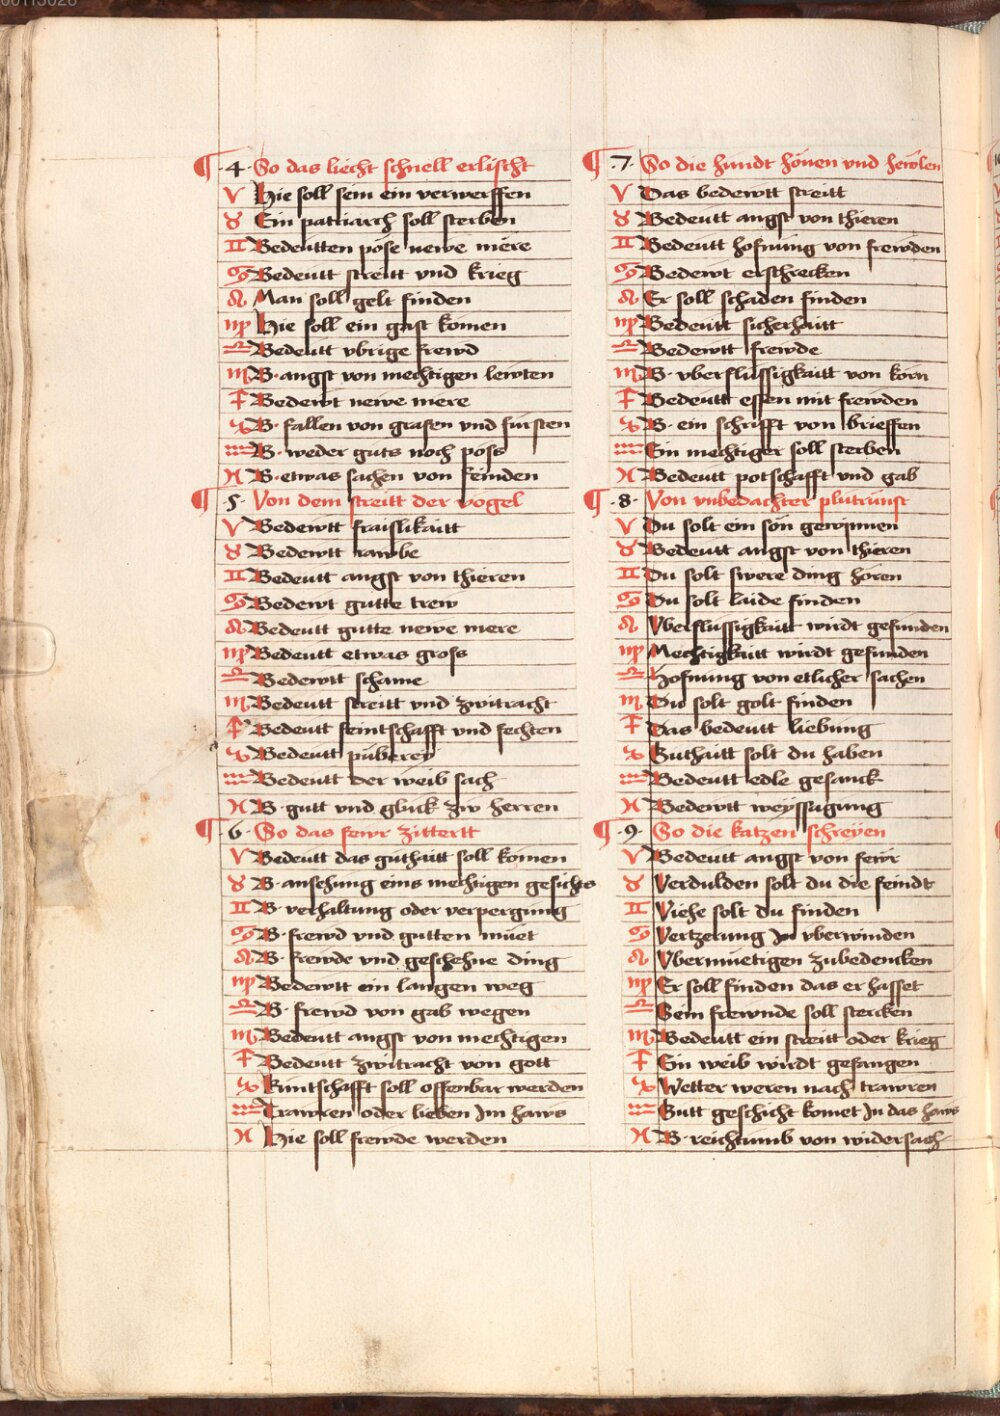 00113028
¶ ·4· So das liecht schnell erlischt
♈ Hie soll sein ein verwerffen
♉ Ein patriarch soll sterben
♊ Bedeutten pöse newe mere
♋ Bedeutt streitt vnd krieg
♌ Man soll gelt finden
♍ Hie soll ein gast komen
♎ Bedeutt vbrige frewd
♏ B· angst von mechtigen lewten
♐ Bedewt newe mere
♑ B· fallen von grafen vnd fürsten
♒ B· weder guts noch pöss
♓ B· etwas sachen von feinden
¶ ·5· Von dem streitt der vogel
♈ Bedewtt fraislikaitt
♉ Bedewtt rawbe
♊ Bedeutt angst von thieren
♋ Bedewt gutte trew
♌ Bedeutt gutte newe mere
♍ Bedeutt etwas gross
♎ Bedewtt schame
♏ Bedeutt streitt vnd zwitracht
♐ Bedeutt feintschafft vnd fechten
♑ Bedeutt püberey
♒ Bedeutt der weib sach
♓ B· gutt vnd gluck zw herren
¶ ·6· So das fewr zittertt
♈ Bedeutt das guthaitt soll komen
♉ B· ansehung eins mechtigen gesichts
♊ B· verhaltung oder verpergung
♋ B· frewd vnd gutten muet
♌ B· frewde vnd geschehne ding
♍ Bedewtt ein langen weg
♎ B· frewd von gab wegen
♏ Bedeutt angst von mechtigen
♐ Bedeut zwitracht von gott
♑ Kuntschafft soll offenbar werden
♒ Trawren oder lieben Im haws
♓ Hie soll frewde werden
¶ ·7· So die hundt hönen vnd hewlen
♈ Das bedewtt streitt
♉ Bedeutt angst von thieren
♊ Bedeutt hofnung von frewden
♋ Bedewt erschrecken
♌ Er soll schaden finden
♍ Bedeutt sicherhaitt
♎ Bedewtt frewde
♏ B· vberflussigkaitt von korn
♐ Bedeutt essen mit frewden
♑ B· ein schrifft von brieffen
♒ Ein mechtiger soll sterben
♓ Bedeutt potschafft vnd gab
¶ ·8· Von vnbedachter plutrunst
♈ Du solt ein son gewinnen
♉ Bedeutt angst von thieren
♊ Du solt swere ding hören
♋ Du solt laide finden
♌ Vberflussigkaitt wirdt gefunden
♍ Mechtigkaitt wirdt gefunden
♎ Hofnung von etlicher sachen
♏ Du solt golt finden
♐ Das bedeutt liebung
♑ Guthaitt solt du haben
♒ Bedeutt edle gesanck
♓ Bedewtt weyssagung
¶ ·9· So die katzen schreyen
♈ Bedeutt angst von fewr
♉ Verdulden solt du die feindt
♊ Viehe solt du finden
♋ Vertzerung zu vberwinden
♌ Vbermuetigen zubedencken
♍ Er soll finden das er hasset
♎ Sein frewnde soll stercken
♏ Bedeutt ein streitt oder krieg
♐ Ein weib wirdt gefangen
♑ Wetter weren nach trawren
♒ Gutt geschicht komet In das haws
♓ B· reichtumb von widersach